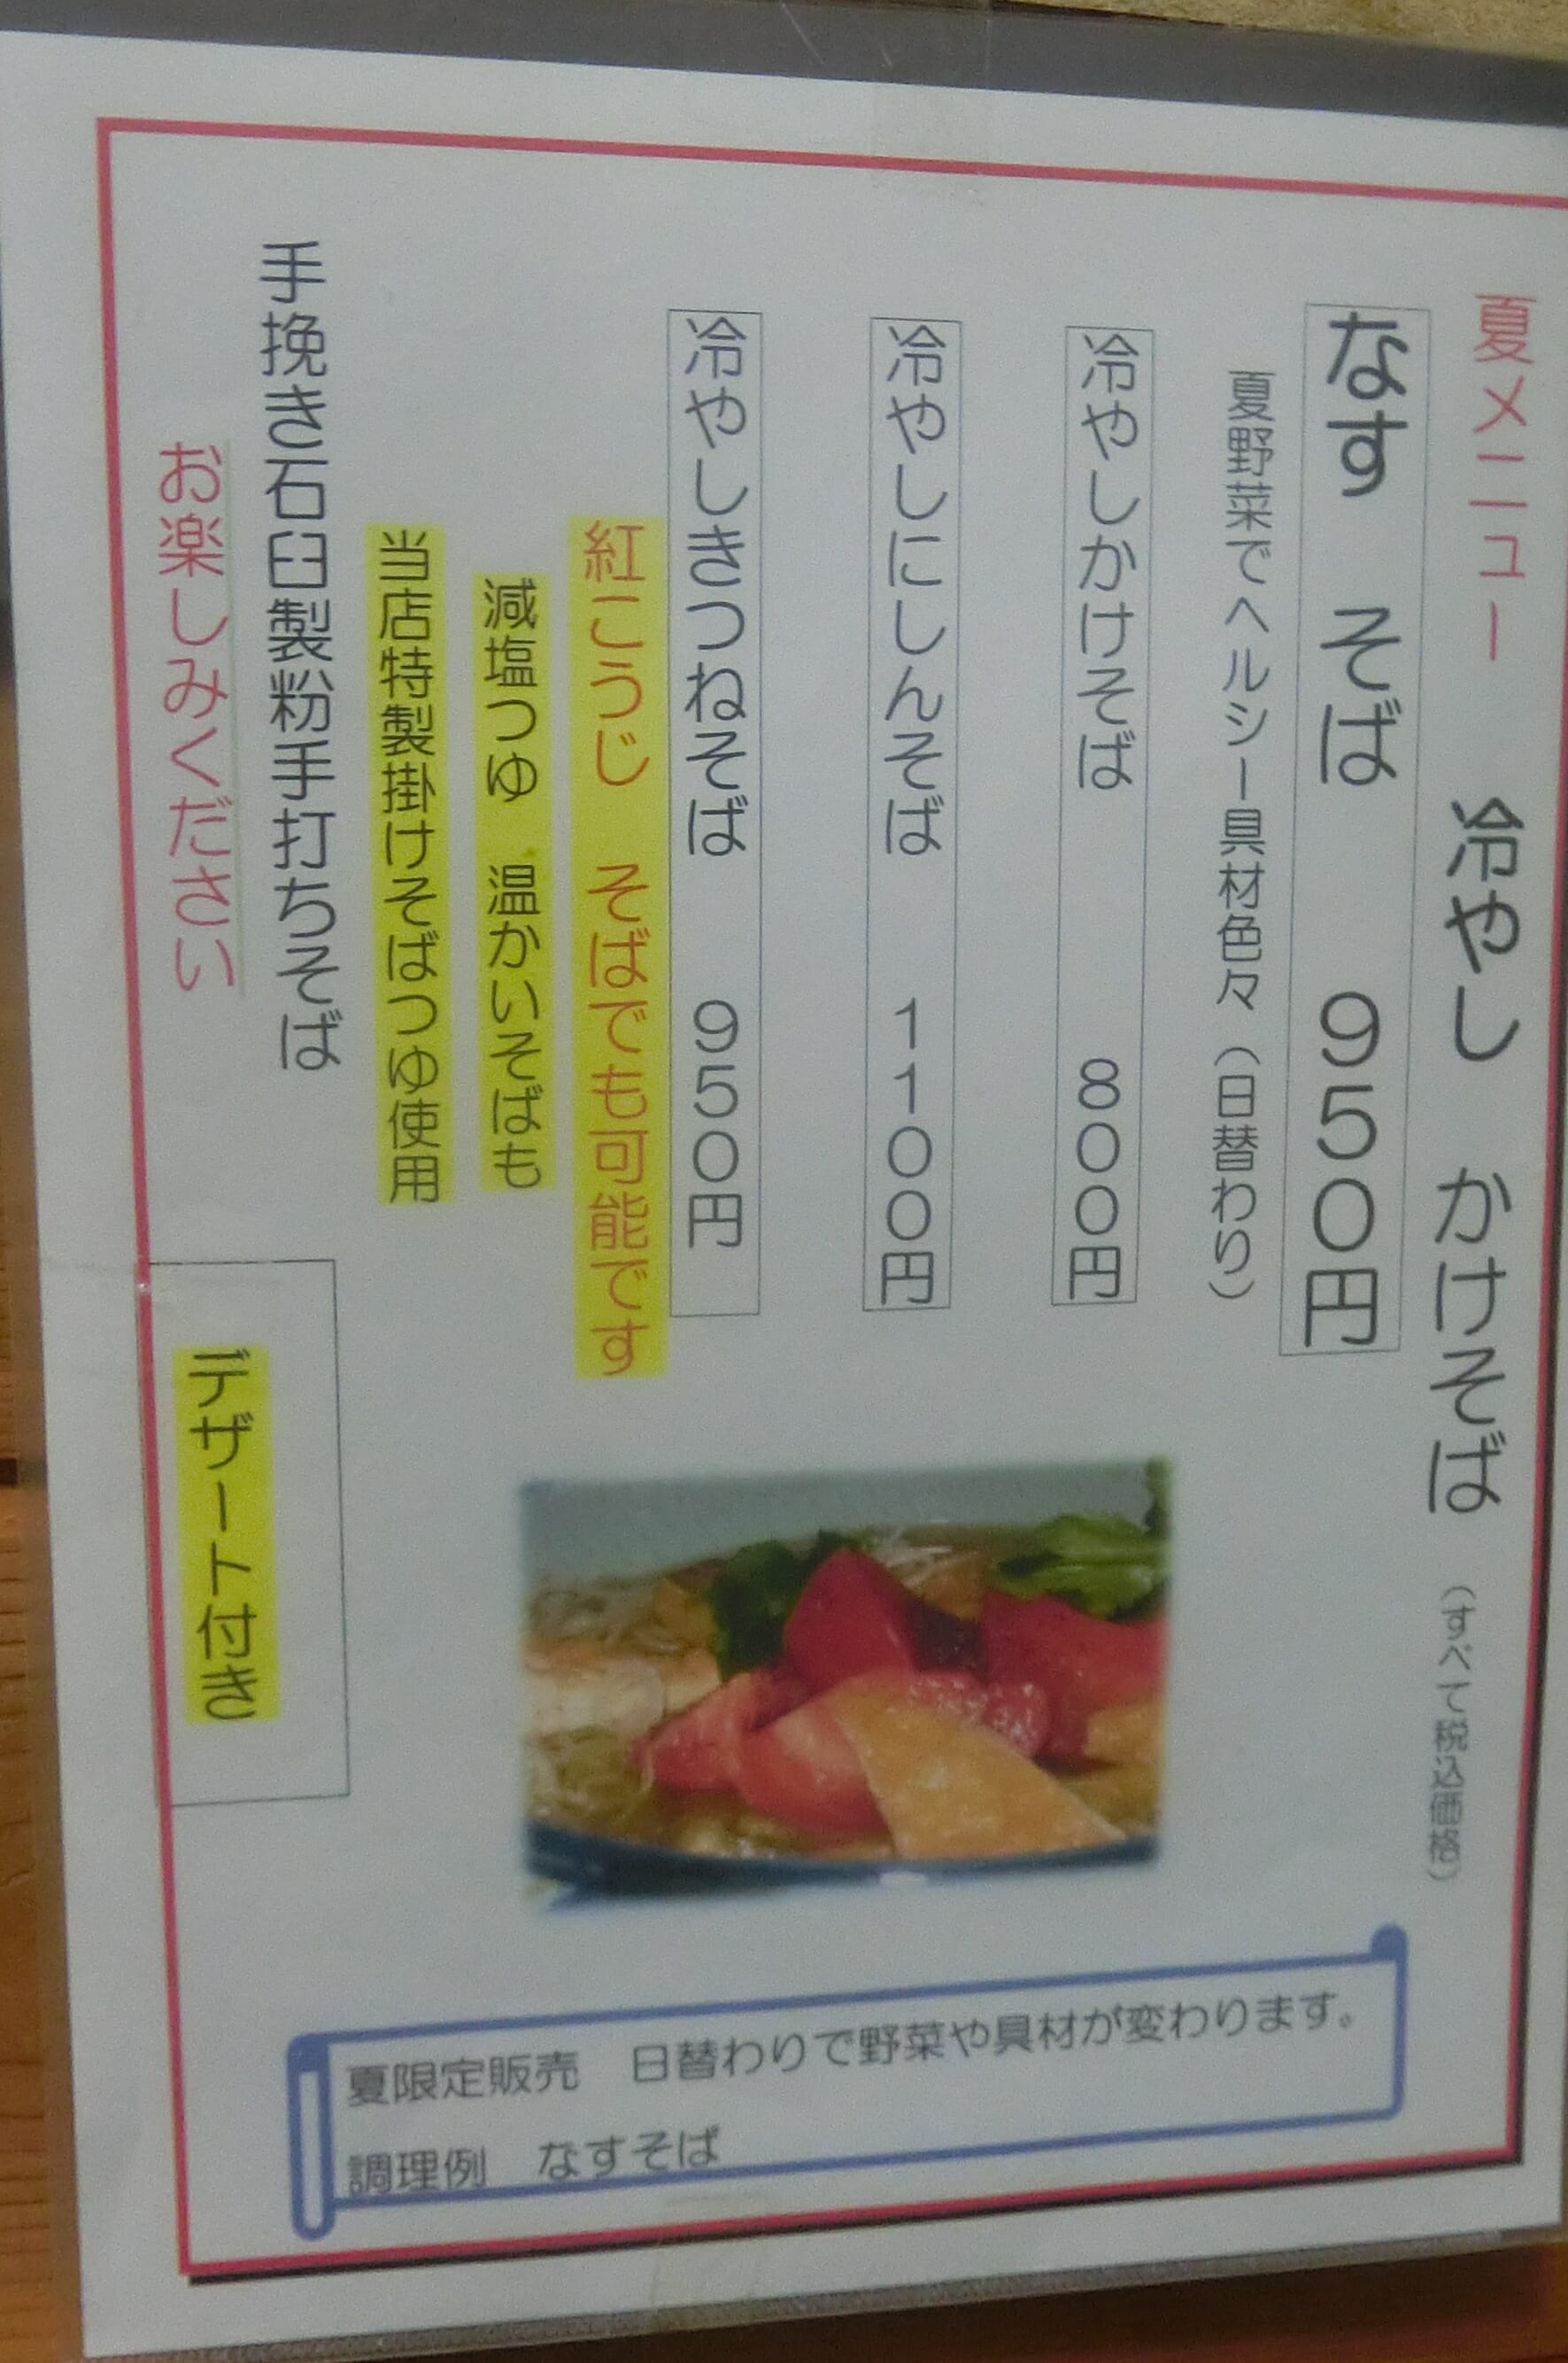 夏メニュー 冷やし かけそば (すべて税込価格)
なす そば 950円
夏野菜でヘルシー具材色々(日替わり)
冷やしかけそば 800円
冷やしにしんそば 1100円
冷やしきつねそば 950円
紅こうじ そばでも可能です
減塩つゆ 温かいそばも
当店特製掛けそばつゆ使用
手挽き石臼製粉手打ちそば
お楽しみください
デザート付き
夏限定販売 日替わりで野菜や具材が変わります。
調理例 なすそば